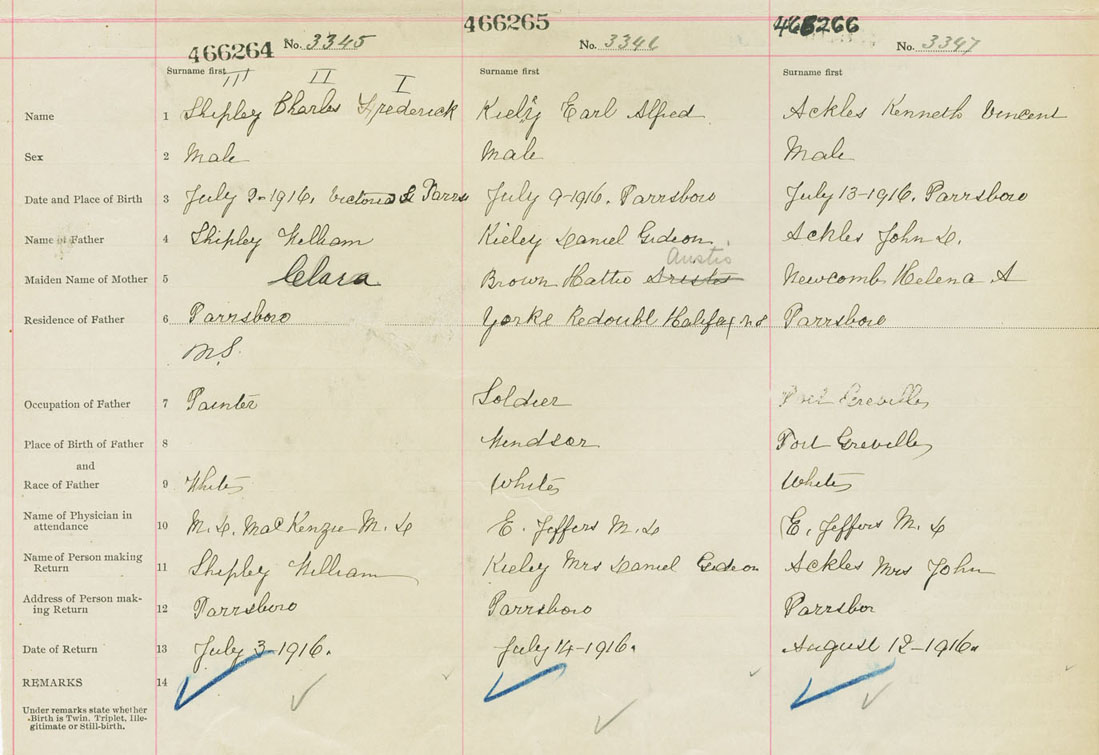 466264 No. 3345 466265 No. 3346 466266 No. 3347
Surname first Surname first Surname first
III II I
Name 1 Shipley Charles Frederick Kiely Earl Alfred Ackles Kenneth Vincent
Sex 2 Male Male Male
Date and Place of Birth 3 July 2-1916. Victoria St Parrs July 9-1916. Parrsboro July 13-1916. Parrsboro
Name of Father 4 Shipley William Kieley Daniel Gideon Ackles John D.
Austis
Maiden Name of Mother 5 Clara Brown Hattie Newcomb Helena A
Residence of Father 6 Parrsboro Yorke Redoubt Halifax N S Parrsboro
N.S.
Occupation of Father 7 Painter Soldier Port Greville
Place of Birth of Father 8 Windsor Port Greville
and
Race of Father 9 White White White
Name of Physician in attendance 10 M. D. MacKenzie M. D E. Jeffers M. D E. Jeffers M. D
Name of Person making Return 11 Shipley William Kieley Mrs Daniel Gideon Ackles Mrs John
Address of Person making Return 12 Parrsboro Parrsboro Parrsbor
Date of Return 13 July 3-1916. July 14-1916. August 12-1916.
REMARKS 14
Under remarks state whether
Birth is Twin, Triplet, Ille-
gitimate or Still-birth.